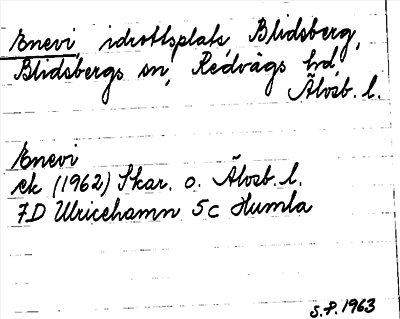 Enevi, idrottsplats, Blidsberg,
Blidsbergs sn, Redvägs hd,
Älvsb. l.
Enevi
ek (1962) Skar. o. Älvsb. l.
7D Ulricehamn 5c Humla
S.P. 1963